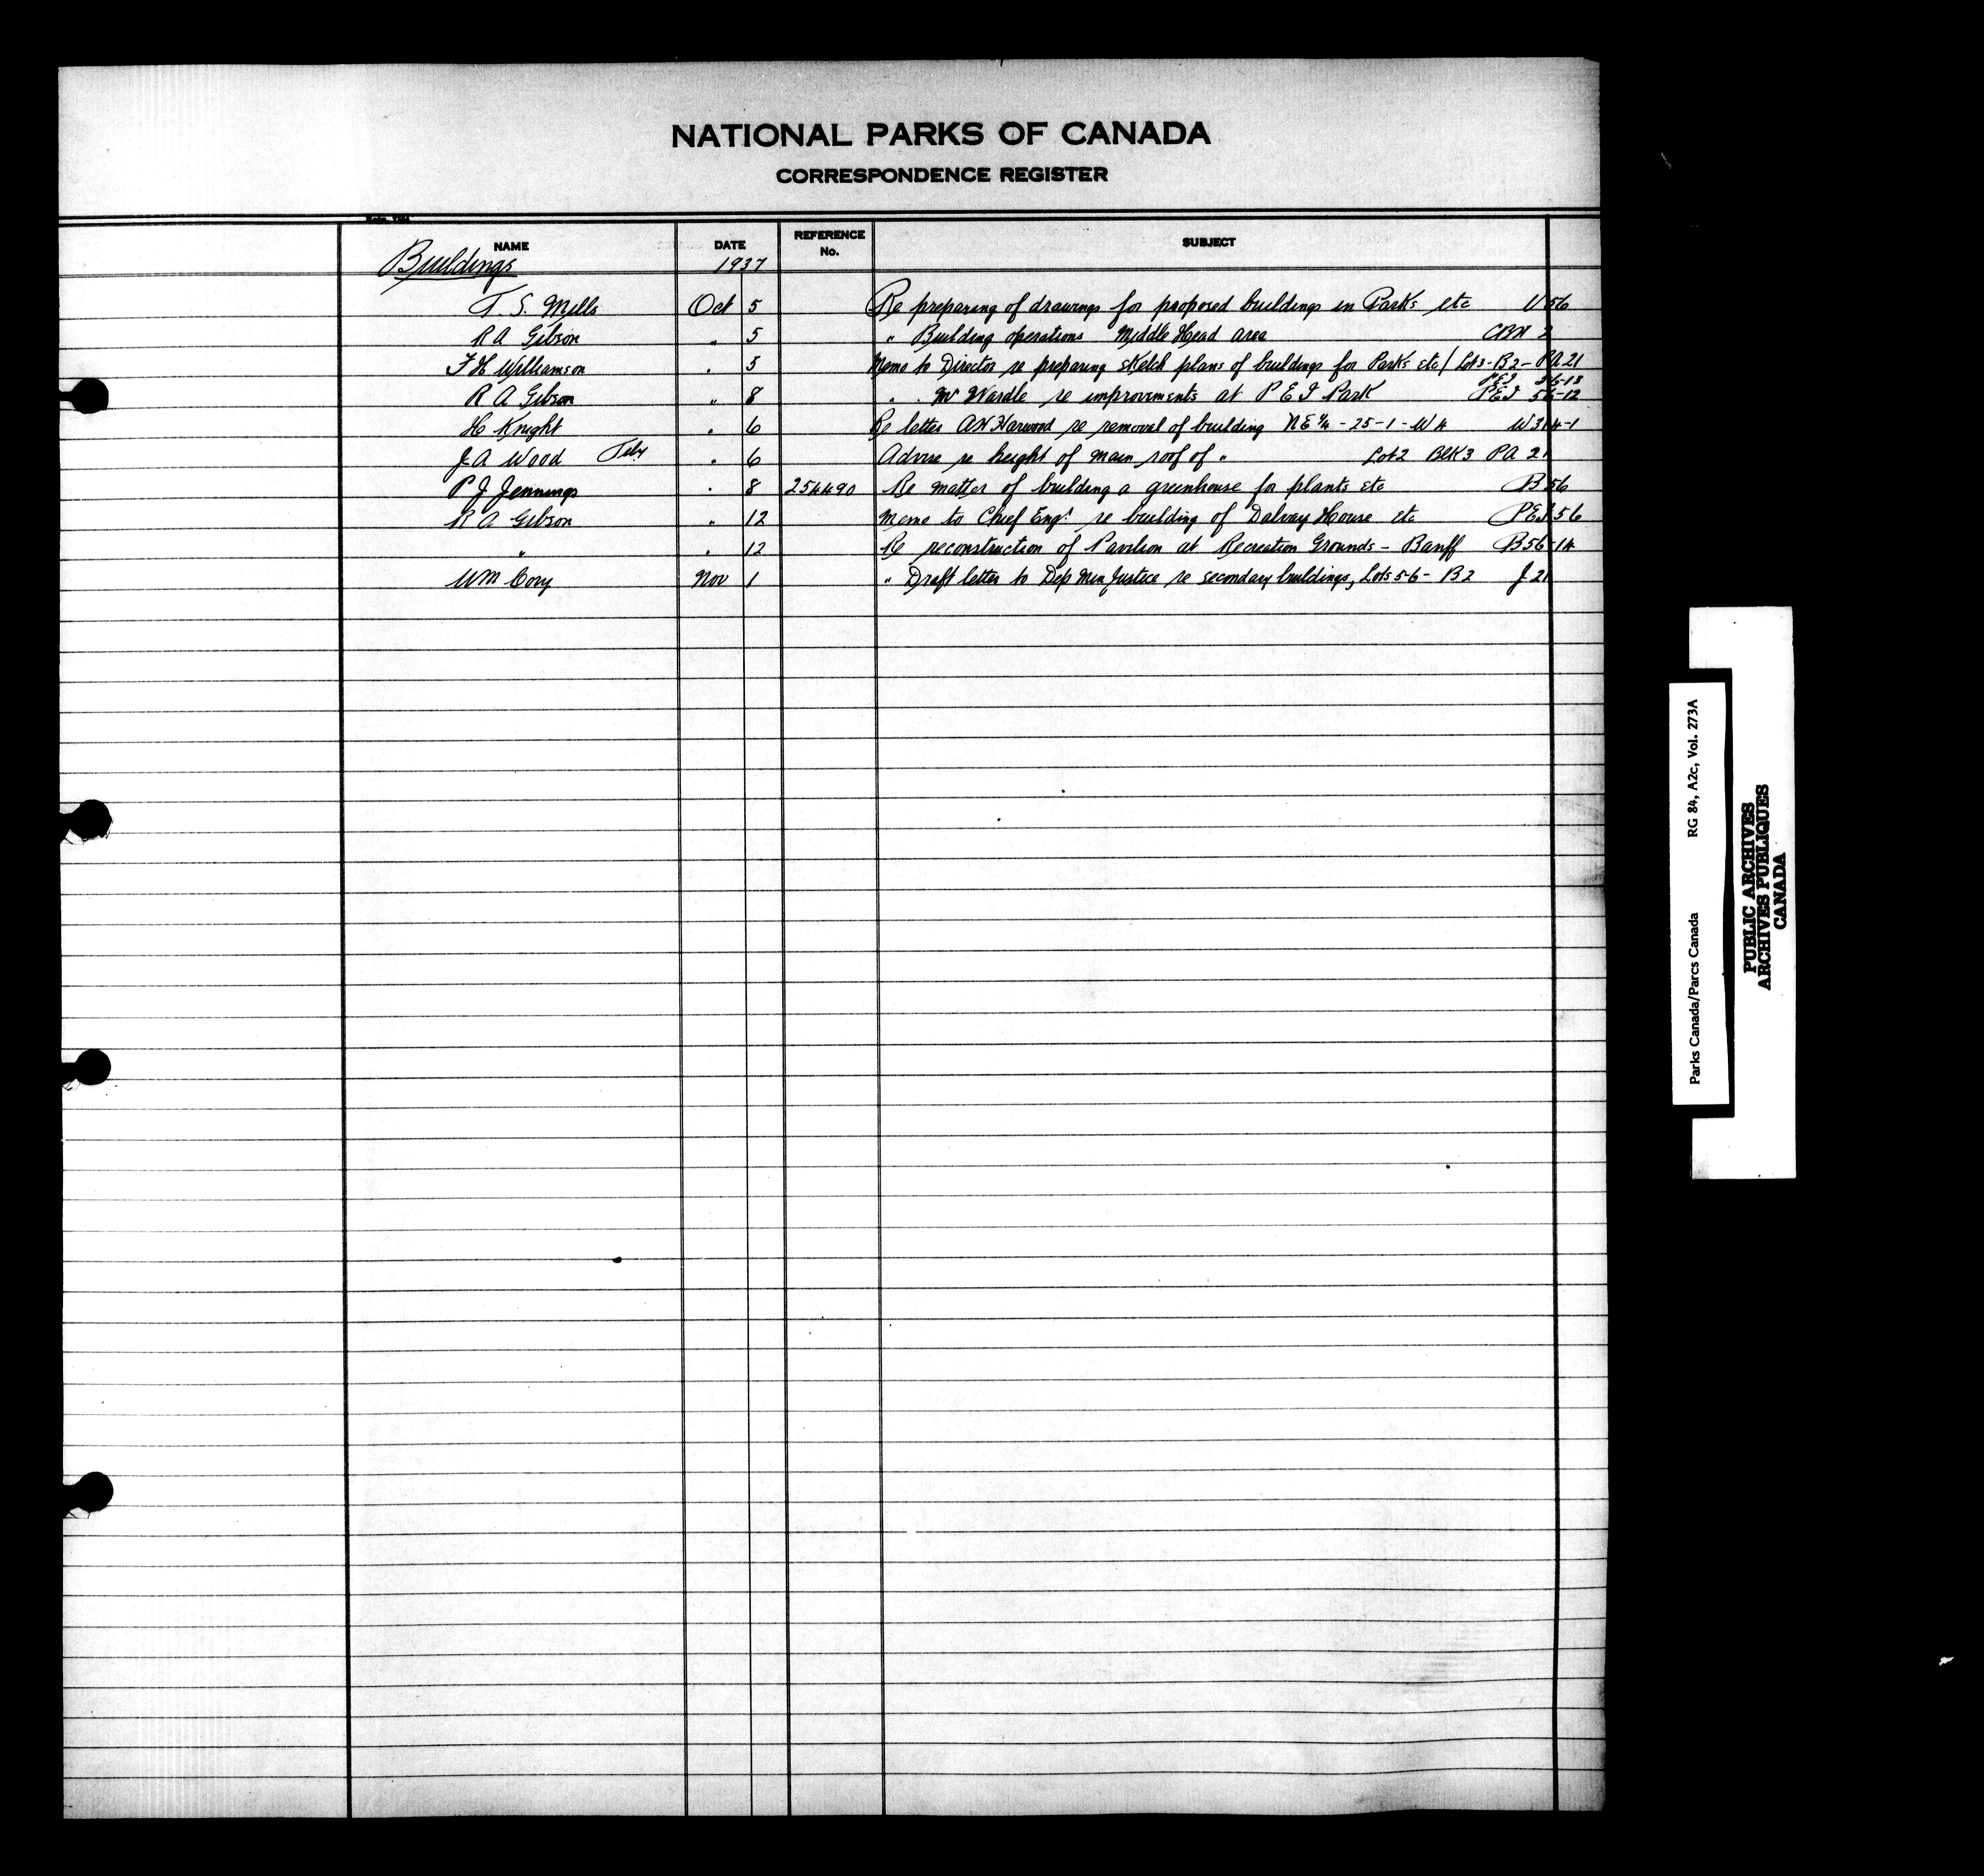 NATIONAL PARKS OF CANADA
CORRESPONDENCE REGISTER
NAME DATE REFERENCE No. SUBJECT
Buildings 1937
T. S. Mills Oct 5 Re preparing of drawings for proposed buildings in Parks etc U 56
R A Gibson " 5 " Building operations Middle Head area CBH 2
F H Williamson " 5 Memo to Director re preparing sketch plans of buildings for Parks etc / Lot 3 - B2 - PA 21
PEI 56-13
R A Gibson " 8 " " Mr Wardle re improvements at P E I Park PEI 56-12
H Knight " 6 Re letter A N Harwood re removal of building NE 1/4 - 25-1-W4 W 314-1
J A Wood " 6 Advise re height of main roof of " Lot 2 Blk 3 PA 21
P J Jennings " 8 254490 Re matter of building a greenhouse for plants etc B 56
R A Gibson " 12 Memo to Chief Engr re building of Dalvay House etc PEI 56
" " 12 Re reconstruction of Pavilion at Recreation Grounds - Banff B56-14
WM Cory Nov 1 " Draft letter to Dep Min Justice re secondary buildings, Lots 5-6 - B2 J 21
Parks Canada/Parcs Canada RG 84, A2c, Vol. 273A
PUBLIC ARCHIVES
ARCHIVES PUBLIQUES
CANADA